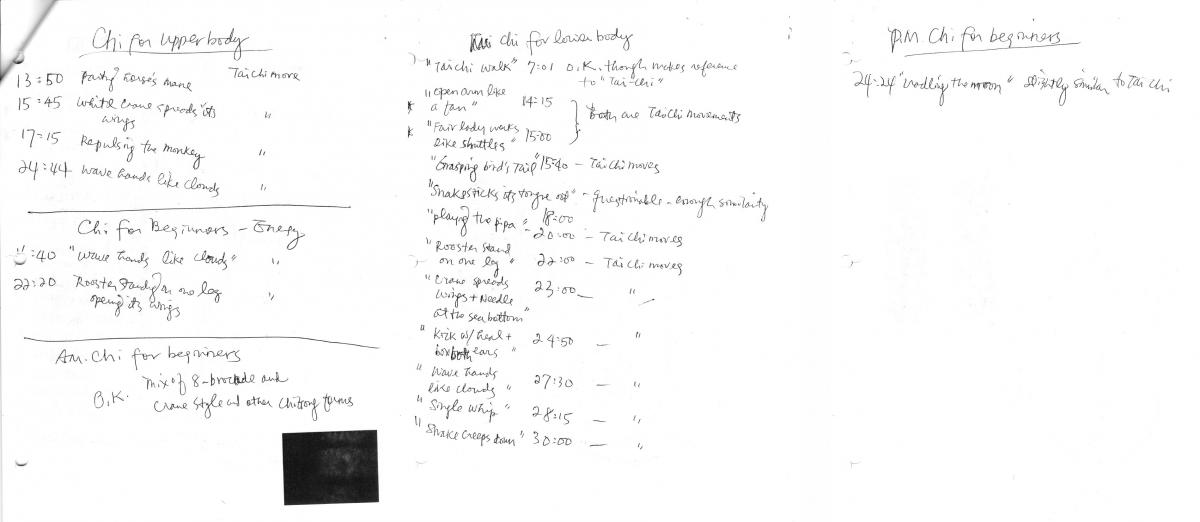 Chi for upper body
13:50 Parting horse's mane Tai chi move
15:45 White Crane spreads its wings "
17:15 Repulsing the monkey "
24:44 wave hands like clouds "
Chi for Beginners - Energy
:40 "wave hands like clouds" "
22:20 Rooster standing on one leg "
opening its wings
Am. Chi for beginners
mix of 8-brocade and
O.K. Crane style and other forms
Chi for lower body
"Taichi walk" 7:01 O.K. though makes reference
to "Tai-Chi"
"open arm like
a fan" 14:15
both are Tai Chi movements
"Fair lady works
like shuttles" 15:00
"Grasping bird's Tail" 15:40 - Tai Chi moves
"Snake sticks its tongue out" - questionable - enough similarity
18:00
"playing the pipa" - 20:00 - Tai Chi moves
"Rooster Stand
on one leg" 22:00 - Tai Chi moves
"Crane spreads
wings + Needle
at the sea bottom" 23:00 - "
"Kick w/ heel +
box both ears" 24:50 - "
"wave hands
like clouds" 27:30 - "
"Single whip" 28:15 - "
"Snake creeps down" 30:00 - "
P.M Chi for beginners
24:24 "cradling the moon" slightly similar to Tai Chi